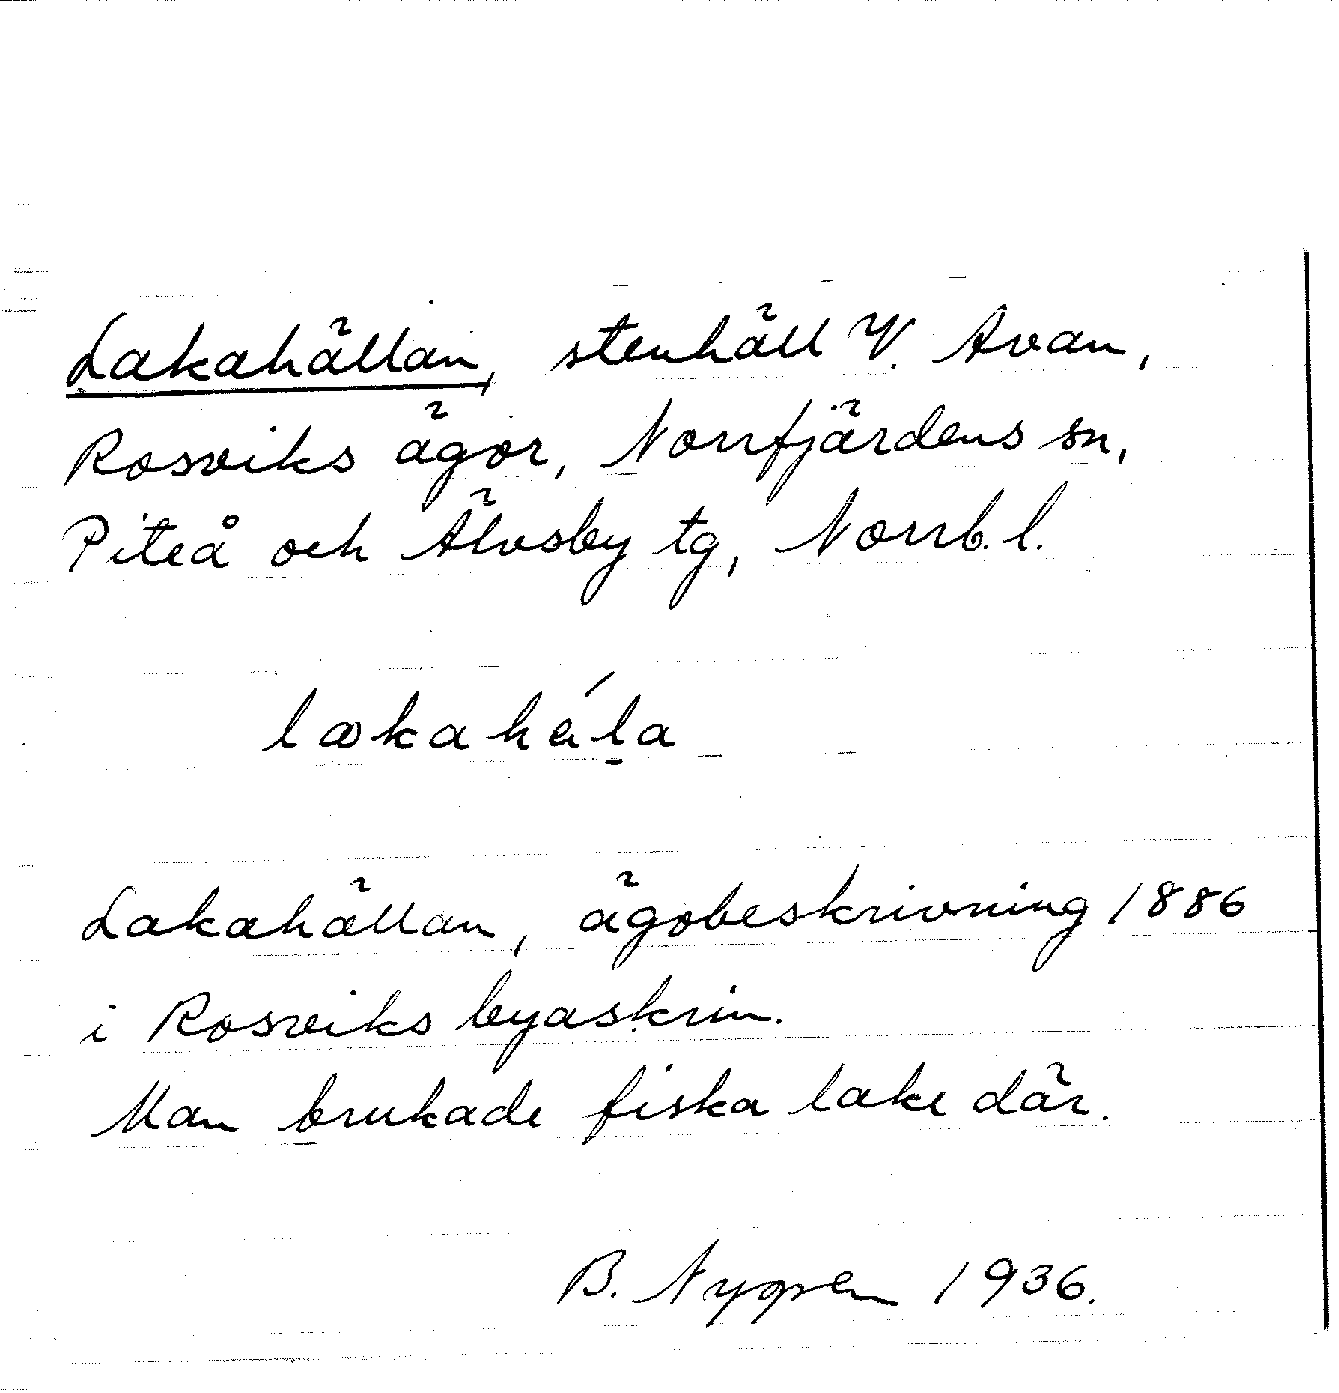 Lakahällan, stenhäll V. Avan,
Rosviks ägor, Norrfjärdens sn,
Piteå och Älvsby tg, Norrb. l.
lækahéḷa
Lakahällan, ägobeskrivning 1886
i Rosviks byaskrin.
Man brukade fiska lake där.
B. Nygren 1936.